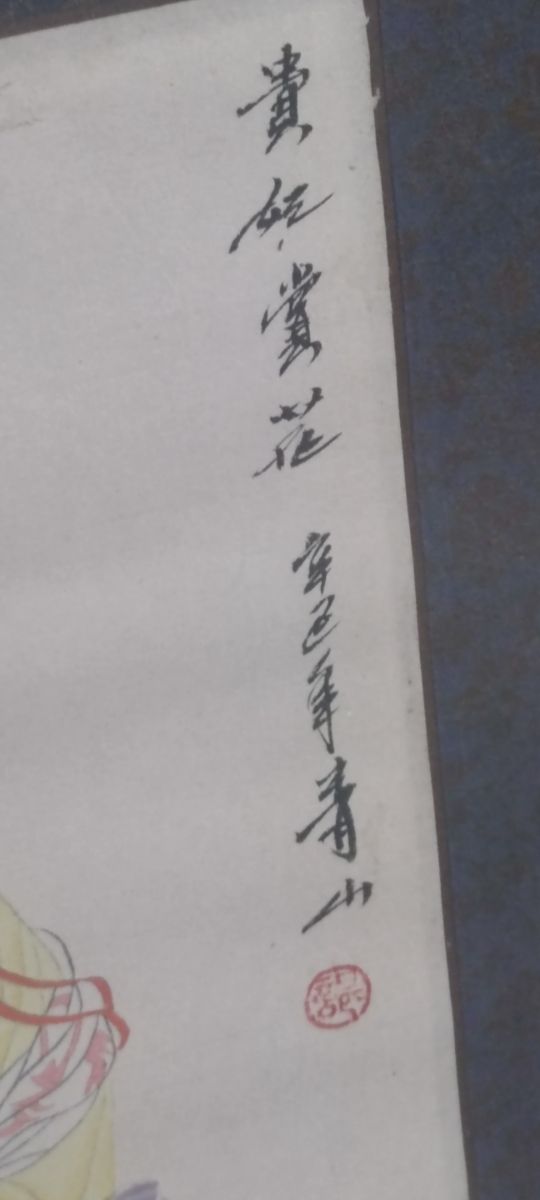 貴妃賞花
辛巳年青山